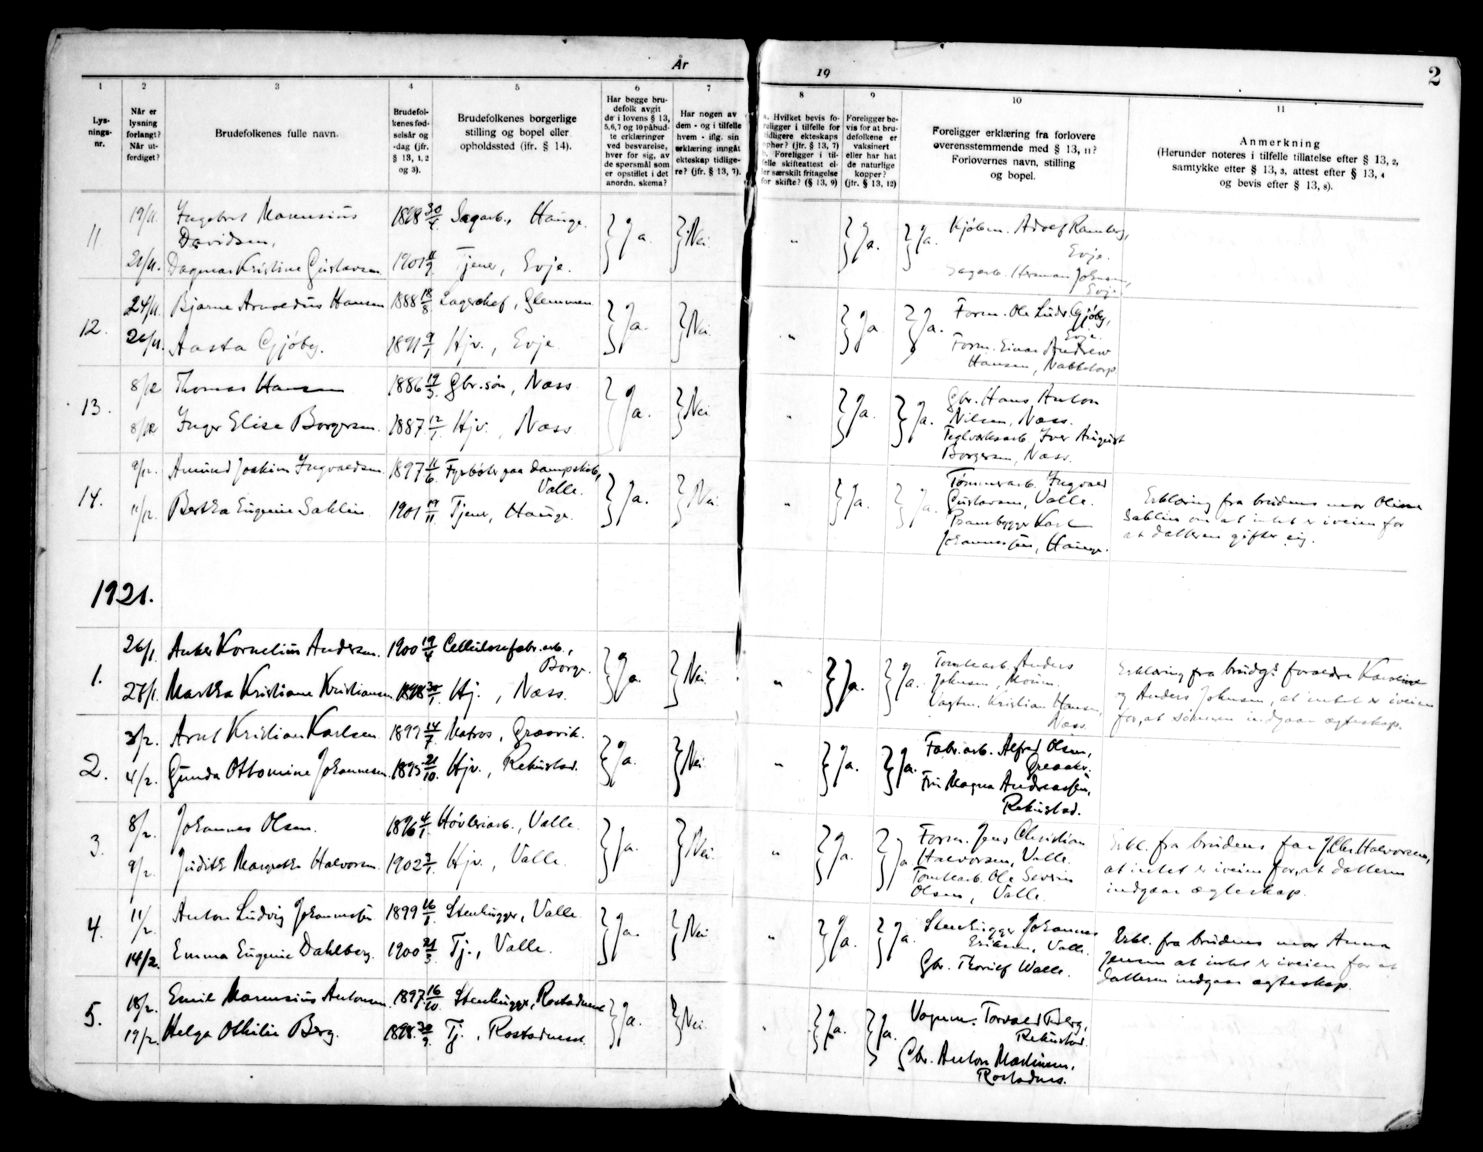 År
19
2
1
2
3
4
5
6
7
8
9
10
11
Lys-
nings-
nr.
Når er
lysning
forlangt?
Når ut-
ferdiget?
Brudefolkenes fulle navn.
Brudefol-
kenes fød-
selsår og
-dag (jfr.
§ 13, 1, 2
og 3).
Brudefolkenes borgerlige
stilling og bopel eller
opholdssted (ifr. § 14).
Har begge bru-
defolk avgit
de i lovens § 13,
5,6,7 og 10 påbud-
te erklæringer
ved besvarelse,
hver for sig, av
de spørsmål som
er opstillet i det
anordn. skema?
Har nogen av
dem - og i tilfelle
hvem - iflg. sin
erklæring inngått
ekteskap tidlige-
re? (jfr. § 13, 7).
Hvilket bevis fo-
religger i tilfelle for
tidligere ekteskaps
ophør? (§ 13, 7)
Foreligger i til-
felle skifteattest el-
ler særskilt fritagelse
for skifte? (§ 13, 9)
Foreligger be-
vis for at bru-
defolkene er
vaksinert
eller har hat
de naturlige
kopper?
(jfr. § 13, 12)
Foreligger erklæring fra forlovere
overensstemmende med § 13, 11?
Forlovernes navn, stilling
og bopel.
Anmerkning
(Herunder noteres i tilfelle tillatelse efter § 13, 2,
samtykke efter § 13, 3, attest efter § 13, 4
og bevis efter § 13, 8).
11
19/11 Ingebret Marensius 1898 30/4 Sagarb., Hauge.
Davidsen,
Dagmar Kristine Gustavsen 1901 Tjener, Evje.
Ja. Nei " Ja. Ja. Kjøbm. Adolf Ramberg,
Evje.
Sagarb. Herman Johansen,
Evje
12.
24/11 Bjarne Arnoldus Hansen 1888 18/8 Lagerchef, Glemmen
26/11. Aasta Gjøby. 1891 9/1 Hjv., Evje
Ja. Nei. " Ja Ja. Form. Ole Ludv Gjøby,
Evje.
Form. Einar Andrew
Hansen, Nabbetorp
13.
8/12 Thomas Hansen 1886 19/3 Gbr.søn, Næss
8/12 Inger Elise Borgersen. 1887 12/1 Hjv., Næss
Ja. Nei " Ja. Ja. Gbr. Hans Anton
Nilsen, Næss.
Teglverksarb. Iver August
Borgersen, Næss.
14.
9/12. Amund Joakim Ingvaldsen. 1897 11/6 Fyrbøter paa dampskib,
Valle.
11/12 Bertha Eugenie Sahlin. 1901 19/11 Tjener, Hauge.
Ja. Nei " Ja. Ja. Tømmerarb. Ingvald
Gustavsen, Valle.
Prambygger Karl
Johannessen, Hauge.
Erklæring fra brudens mor Oline
Sahlin om at intet er iveien for
at datteren gifter sig.
1921.
1.
26/1. Anker Kornelius Andersen. 1900 19/4 Cellulosefabr.arb.,
Borge
27/1. Martha Kristiane Kristiansen 1898 Hj., Næss.
Ja. Nei " Ja. Ja. Tomtearb. Anders
Johnsen, Moum,
Vagtm. Kristian Hansen,
Næss.
Erklæring fra brudg's foreldre Karoline
og Anders Johnsen, at intet er iveien
for, at sønnen indgaar ægteskap.
2.
3/2. Arnt Kristian Karlsen. 1899 14/7 Matros, Græsvik.
4/2. Gunda Ottomine Johannesen. 1895 21/10 Hjv., Rekustad.
Ja. Nei " Ja. Ja. Fabr.arb. Alfred Olsen,
Greaaker.
Fru Magna Andreassen,
Rekustad.
3.
8/2. Johannes Olsen. 1896 4/1 Høvleriarb., Valle.
9/2. Judith Margrethe Halvorsen. 1902 Hjv., Valle.
Ja. Nei " Ja. Ja Form. Jens Christian
Halvorsen, Valle.
Tomtearb. Ole Severin
Olsen, Valle.
Erkl. fra brudens far Halvorsen,
at intet er iveien for, at datteren
indgaar ægteskap.
4.
11/2 Anton Ludvig Johannessen 1899 16/1 Stenhugger, Valle.
14/2. Emma Eugenie Dahlberg. 1900 21/3 Tj., Valle.
Ja. Nei " Ja. Ja. Stenhugger Johannes
Eriksen, Valle.
Gbr. Thorleif Walle.
Erkl. fra brudens mor Anna
Jensen at intet er iveien for at
datteren indgaar ægteskap.
5.
18/2. Emil Marensius Antonsen. 1897 16/10 Stenhugger, Rostadneset
19/2. Helga Othilie Berg. 1898 Tj., Rostadneset.
Ja. Nei " Ja. Ja. Vognm. Torvald Berg,
Rekustad.
Gbr. Anton Martinsen,
Rostadnes.